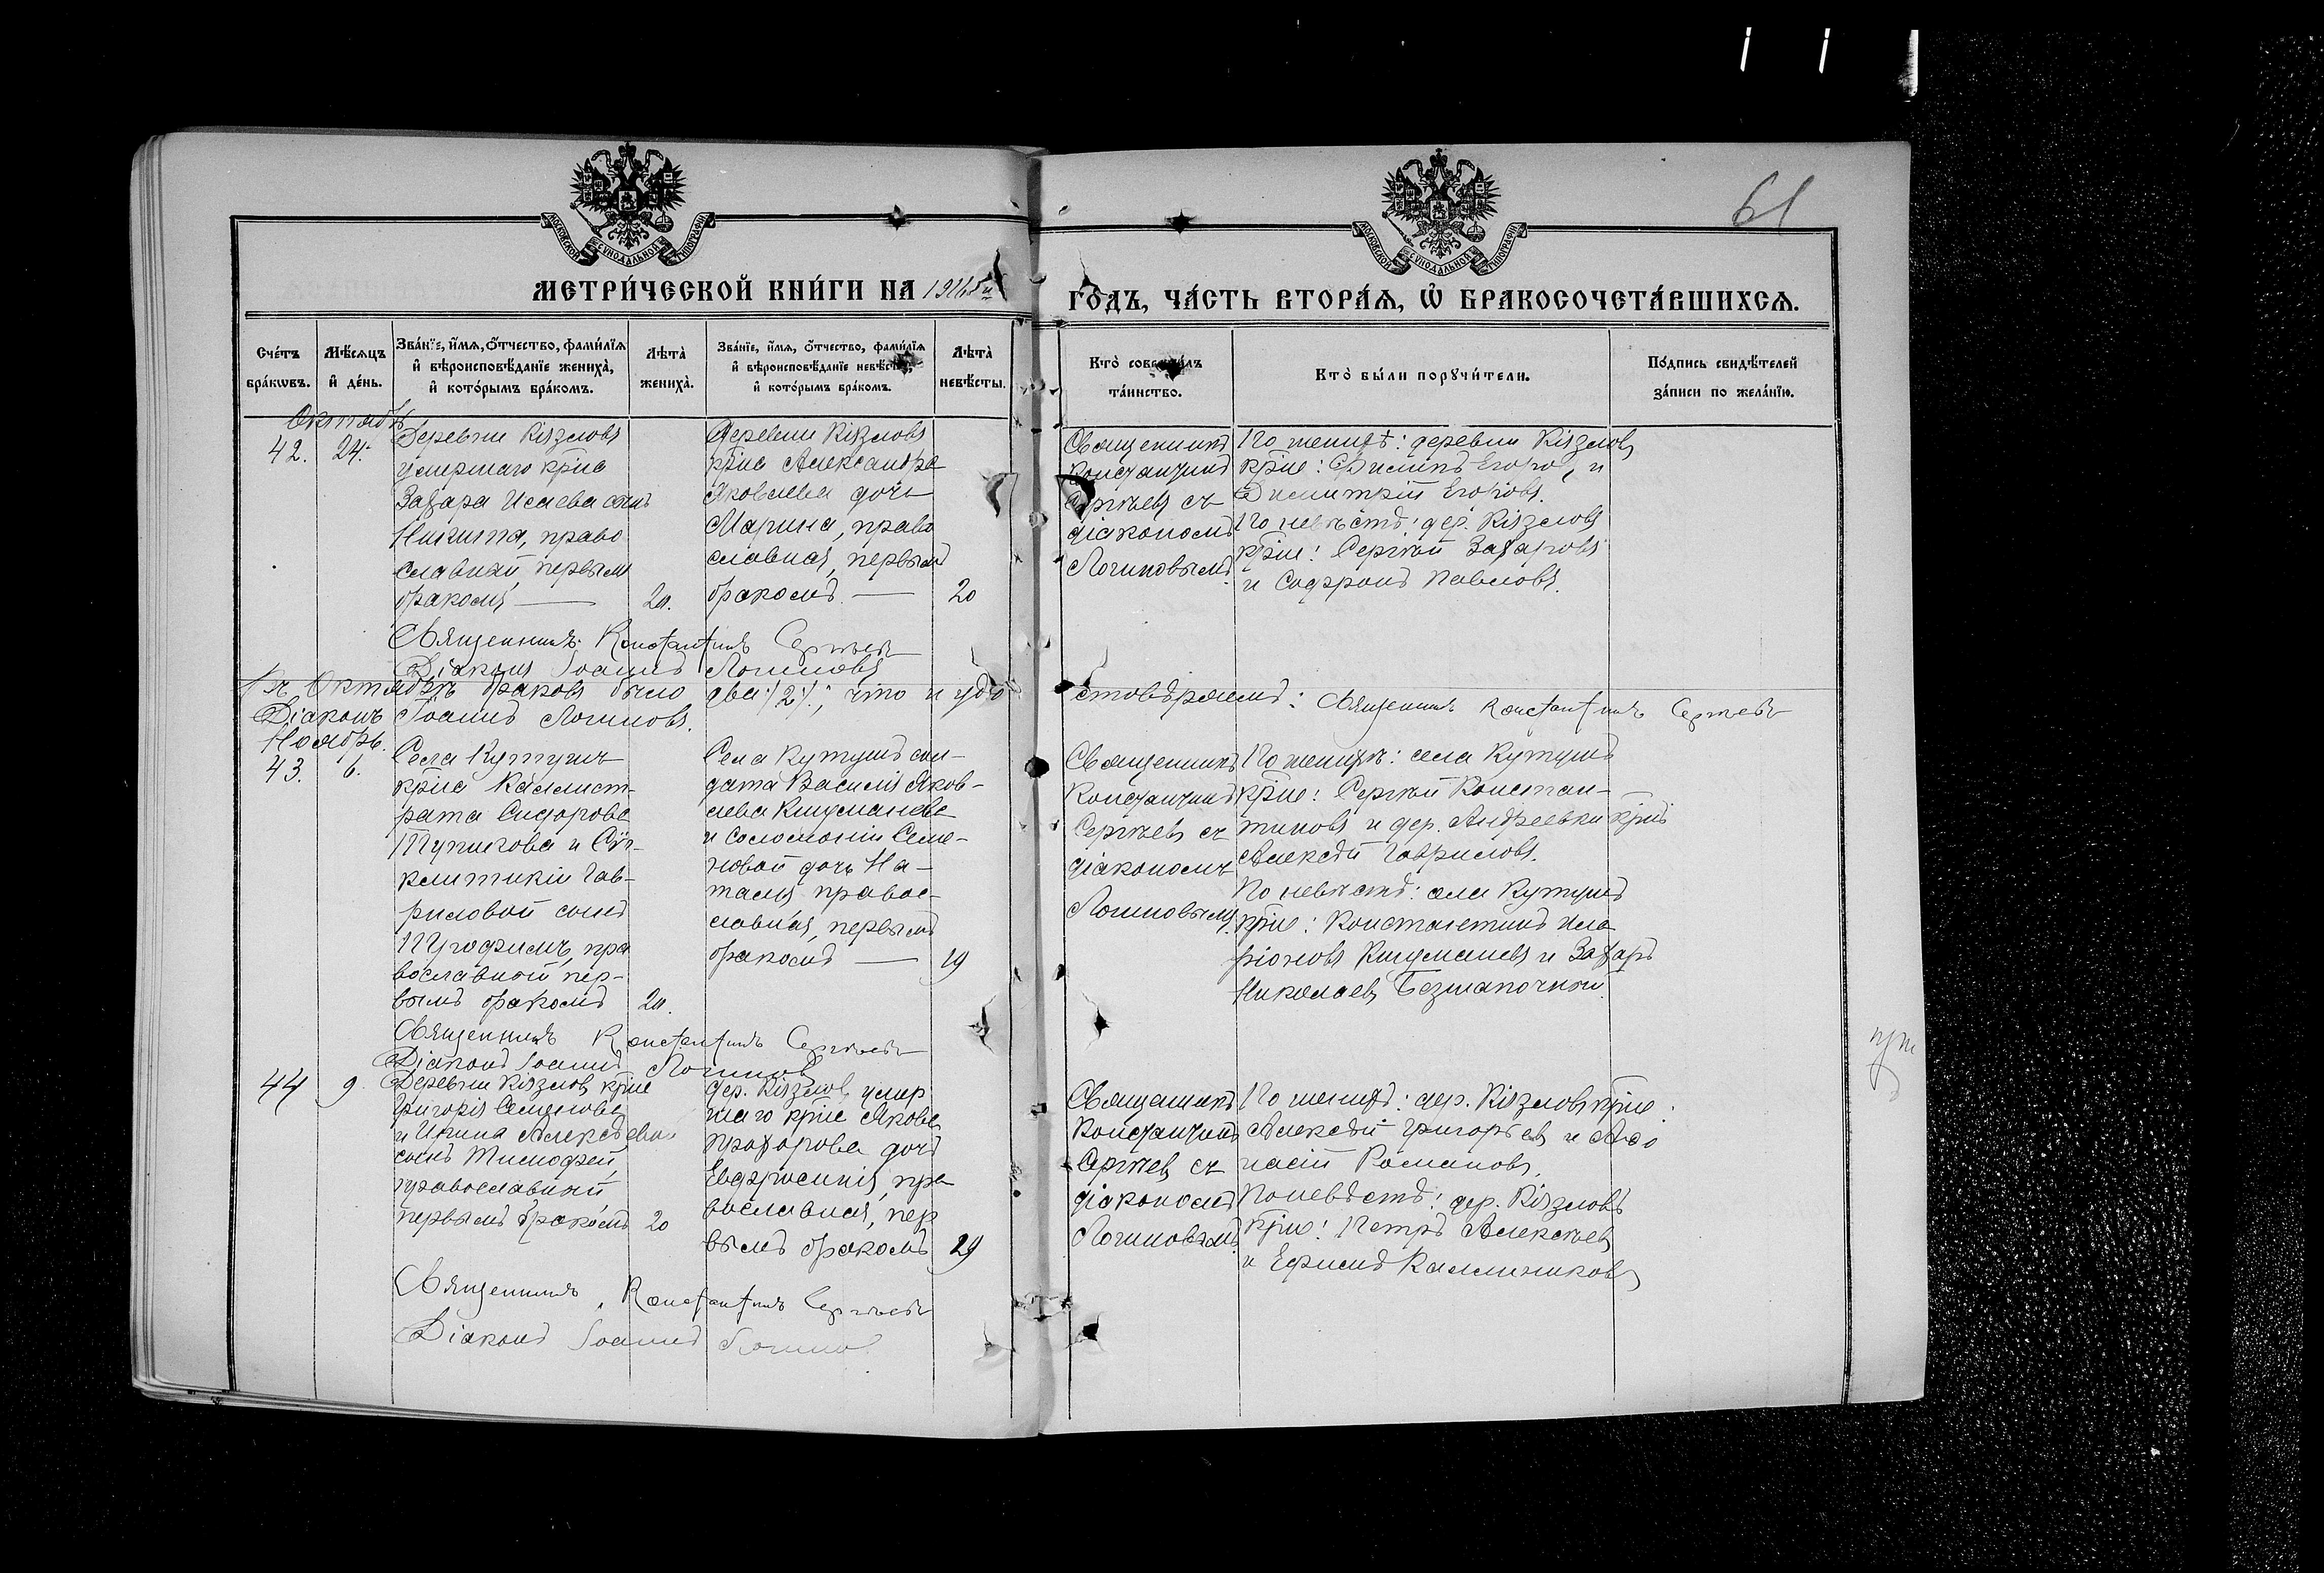 61
МОСКОВСКОЙ СѴНОДАЛЬНОЙ ТИПОГРАФІИ
МОСКОВСКОЙ СѴНОДАЛЬНОЙ ТИПОГРАФІИ
МЕТРИ́ЧЕСКОЙ КНИ́ГИ НА
ГО́ДЪ, ЧА́СТЬ ВТОРА́Ѧ, Ѡ҆ БРАКОСОЧЕТА́ВШИХСѦ.
Сче́тъ бра́кѡвъ.
Мѣ́сѧцъ и҆ де́нь.
Зва́нїе, и҆́мѧ, ѻ҆́тчество, фами́лїѧ
и҆ вѣроисповѣ́данїе жениха̀,
и҆ кото́рымъ бра́комъ.
Лѣта̀ жениха̀.
Зва́нїе, и҆́мѧ, ѻ҆́тчество, фами́лїѧ
и҆ вѣроисповѣ́данїе невѣ́сты,
и҆ кото́рымъ бра́комъ.
Лѣта̀ невѣ́сты.
Кто̀ соверши́лъ
та́инство.
Кто̀ бы́ли порꙋчи́тели.
По́дпись свидѣ́телей
за́писи по жела́нїю.
Октябрь
42. 24.
Деревни Кіязловъ
умершаго крⷭ҇на
Захара Исаева сынъ
Никита, право
славный, первымъ
бракомъ —
20.
Деревни Кіязловъ
крⷭ҇на Александра
Яковлева дочь
Марина, право
славная, первымъ
бракомъ. —
20
Священникъ
Константинъ
Сергѣевъ съ
діакономъ
Логиновымъ.
По женихѣ: деревни Кіязловъ
крⷭ҇не: Филипъ Егоровъ, и
Димитрій Егоровъ.
По невѣстѣ: дер. Кіязловъ
крⷭ҇не: Сергѣй Захаровъ
и Софронъ Павловъ.
Священникъ Константинъ Сергѣевъ
Діаконъ Іоаннъ Логиновъ
Въ Октябрѣ браковъ было два /2/, что и удо
стовѣряемъ: Священникъ Константинъ Сергѣевъ
Діаконъ Іоаннъ Логиновъ.
Ноябрь.
43. 6.
Села Кутушъ
крⷭ҇на Каллист-
рата Сидорова
и
Гав-
риловой сынъ
Трофимъ, пра
вославный пер-
вымъ бракомъ
20.
Села Кутушъ сол-
дата Василія Яков-
лева
и Соломоніи Семе-
новой дочь На-
талія правос-
славная, первымъ
бракомъ —
19
Священникъ
Константинъ
Сергѣевъ съ
діакономъ
Логиновымъ.
По женихѣ: села Кутушъ
крⷭ҇не: Сергѣй Констан-
тиновъ и дер. Андреевки крⷭ҇нъ
Алексѣй Гавриловъ.
По невѣстѣ: села Кутушъ
крⷭ҇не: Константинъ Ила
ріоновъ и Захаръ
Николаевъ Безшапочный.
Священникъ Константинъ Сергѣевъ
Діаконъ Іоаннъ Логиновъ
44 9
Деревни Кіязловъ крⷭ҇не
Григорія Семенова
и Ирина Алексѣева
сынъ Тимофей,
православный
первымъ бракомъ
20
дер. Кіязловъ умер
шаго крⷭ҇не Якова
Прохорова дочь
Евфросинія, пра
вославная, пер
вымъ бракомъ
19
Священникъ
Константинъ
Сергѣевъ съ
діакономъ
Логиновымъ.
По женихѣ: дер. Кіязловъ крⷭ҇не:
Алексѣй Григорьевъ и Афо
насій Романовъ.
По невѣстѣ: дер. Кіязловъ
крⷭ҇не: Петръ Алексѣевъ
и Ефимъ Каллиниковъ
Священникъ Константинъ Сергѣевъ
Діаконъ Іоаннъ Логинов